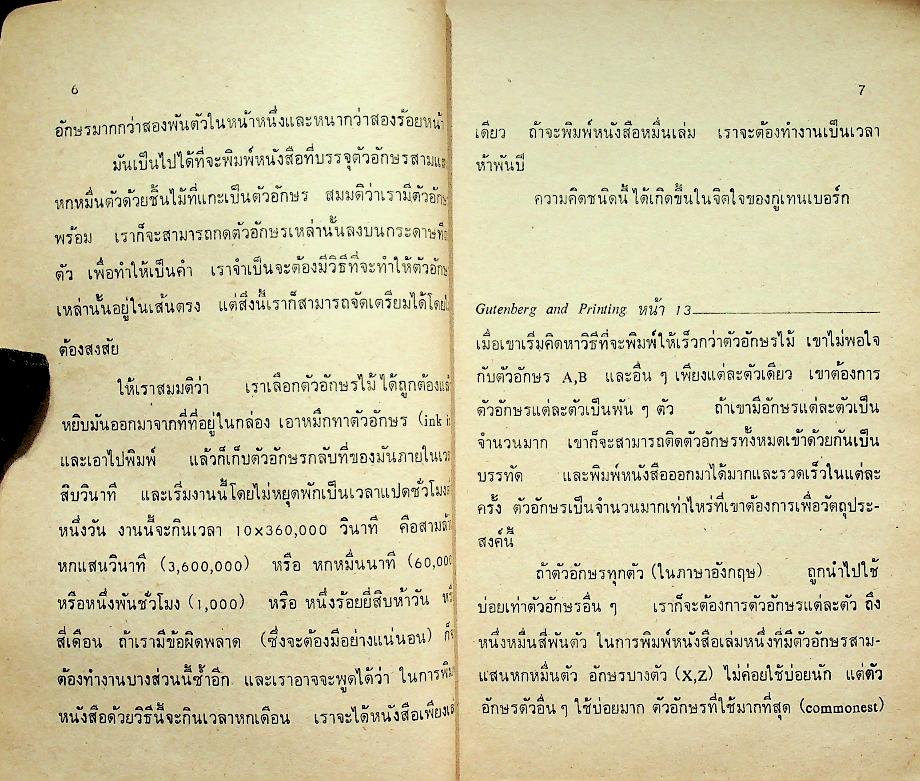 6
อักษรมากกว่าสองพันตัวในหน้าหนึ่งและหนากว่าสองร้อยหน้า
มันเป็นไปได้ที่จะพิมพ์หนังสือที่บรรจุตัวอักษรสามแสน
หกหมื่นตัวด้วยชิ้นไม้ที่แกะเป็นตัวอักษร สมมติว่าเรามีตัวอักษร
พร้อม เราก็จะสามารถกดตัวอักษรเหล่านั้นลงบนกระดาษทีละ
ตัว เพื่อทำให้เป็นคำ เราจำเป็นจะต้องมีวิธีที่จะทำให้ตัวอักษร
เหล่านั้นอยู่ในเส้นตรง แต่สิ่งนี้เราก็สามารถจัดเตรียมได้โดยไม่
ต้องสงสัย
ให้เราสมมติว่า เราเลือกตัวอักษรไม้ได้ถูกต้องแล้ว
หยิบมันออกมาจากที่ที่อยู่ในกล่อง เอาหมึกทาตัวอักษร (ink it
และเอาไปพิมพ์ แล้วก็เก็บตัวอักษรกลับที่ของมันภายในเวลา
สิบวินาที และเริ่มงานนี้โดยไม่หยุดพักเป็นเวลาแปดชั่วโมงต่อ
หนึ่งวัน งานนี้จะกินเวลา 10×360,000 วินาที คือสามล้าน
หกแสนวินาที (3,600,000) หรือ หกหมื่นนาที (60,000
หรือหนึ่งพันชั่วโมง (1,000) หรือ หนึ่งร้อยยี่สิบห้าวัน หรือ
สี่เดือน ถ้าเรามีข้อผิดพลาด (ซึ่งจะต้องมีอย่างแน่นอน) ก็จะ
ต้องทำงานบางส่วนนี้ซ้ำอีก และเราอาจจะพูดได้ว่า ในการพิมพ์
หนังสือด้วยวิธีนี้จะกินเวลาหกเดือน เราจะได้หนังสือเพียงเล่ม
7
เดียว ถ้าจะพิมพ์หนังสือหมื่นเล่ม เราจะต้องทำงานเป็นเวลา
ห้าพันปี
ความคิดชนิดนี้ได้เกิดขึ้นในจิตใจของกูเทนเบอร์ก
Gutenberg and Printing หน้า 13
เมื่อเขาเริ่มคิดหาวิธีที่จะพิมพ์ให้เร็วกว่าตัวอักษรไม้ เขาไม่พอใจ
กับตัวอักษร A,B และอื่น ๆ เพียงแต่ละตัวเดียว เขาต้องการ
ตัวอักษรแต่ละตัวเป็นพัน ๆ ตัว ถ้าเขามีอักษรแต่ละตัวเป็น
จำนวนมาก เขาก็จะสามารถติดตัวอักษรทั้งหมดเข้าด้วยกันเป็น
บรรทัด และพิมพ์หนังสือออกมาได้มากและรวดเร็วในแต่ละ
ครั้ง ตัวอักษรเป็นจำนวนมากเท่าไหร่ที่เขาต้องการเพื่อวัตถุประ-
สงค์นี้
ถ้าตัวอักษรทุกตัว (ในภาษาอังกฤษ) ถูกนำไปใช้
บ่อยเท่าตัวอักษรอื่น ๆ เราก็จะต้องการตัวอักษรแต่ละตัว ถึง
หนึ่งหมื่นสี่พันตัว ในการพิมพ์หนังสือเล่มหนึ่งที่มีตัวอักษรสาม-
แสนหกหมื่นตัว อักษรบางตัว (X,Z) ไม่ค่อยใช้บ่อยนัก แต่ตัว
อักษรตัวอื่น ๆ ใช้บ่อยมาก ตัวอักษรที่ใช้มากที่สุด (commonest)